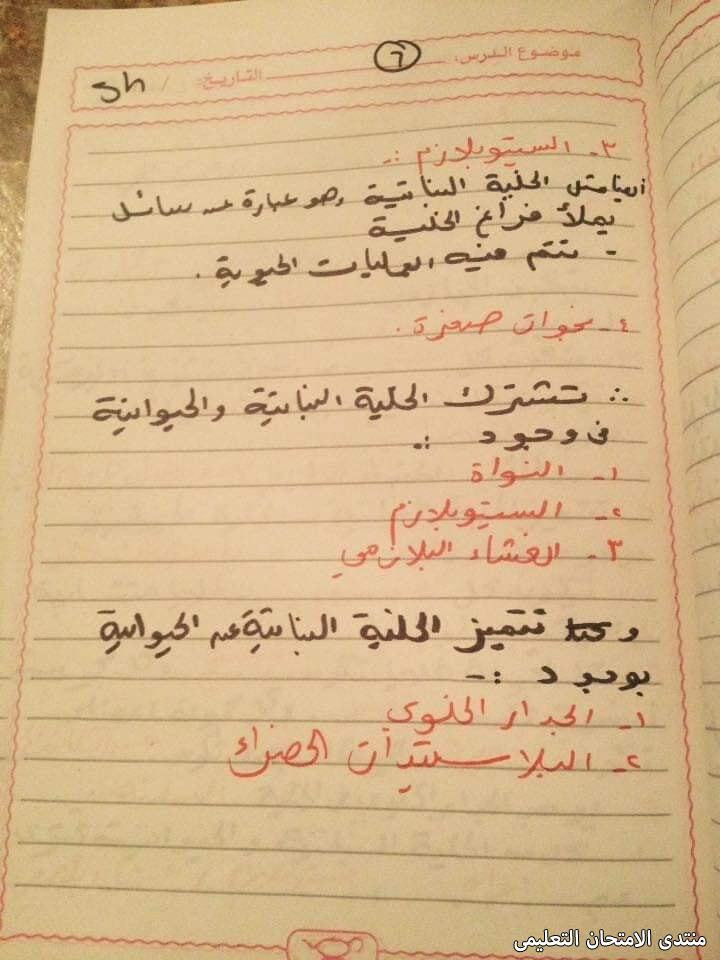 موضوع الدرس: ٦
التاريخ: / Sh
٣- السيتوبلازم :-
أيضا مثل الخلية النباتية وهو عبارة عن سائل
يملأ فراغ الخلية
- تتم فيه العمليات الحيوية .
٤- فجوات صغيرة .
∴ تشترك الخلية النباتية والحيوانية
فى وجود :-
١- النواة
٢- السيتوبلازم
٣- الغشاء البلازمي
و تتميز الخلية النباتية عن الحيوانية
بوجود :-
١- الجدار الخلوي
٢- البلاستيدات الخضراء
منتدى الامتحان التعليمى